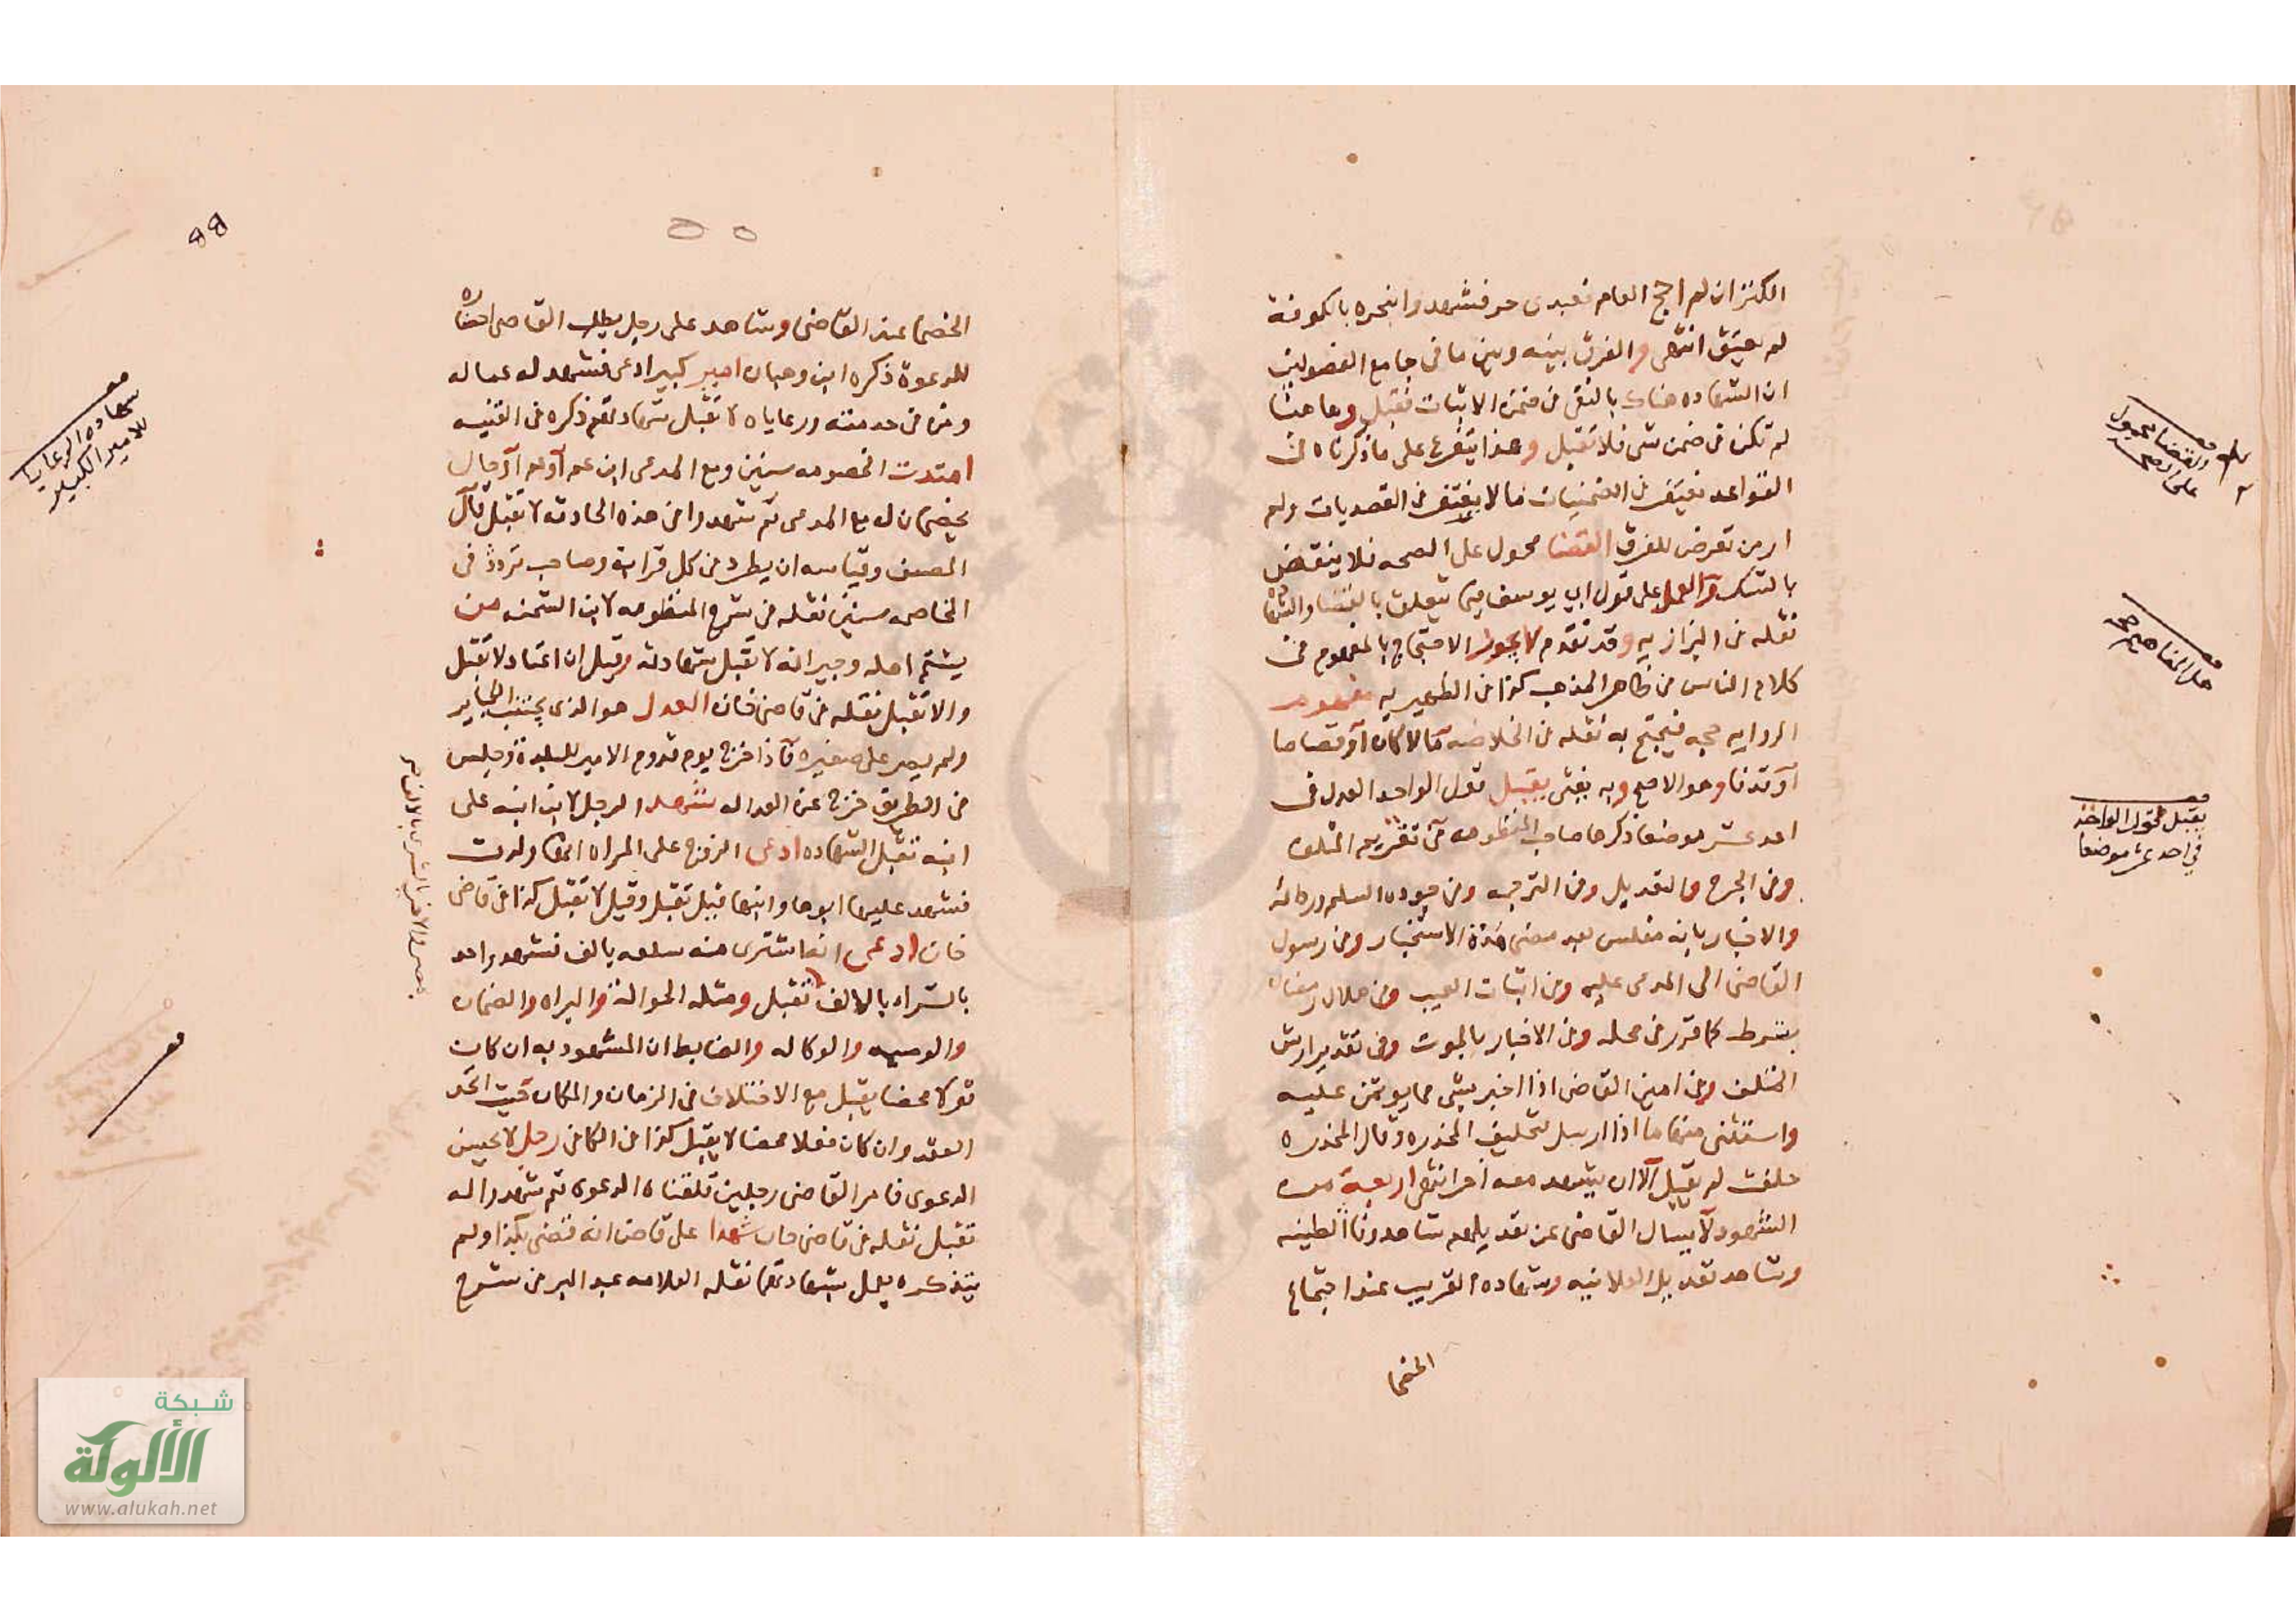 الكنز ان لم احج العام فعبدى حر فشهدوا بنحره بالكوفة
لم يعتق انتهى والفرق بينه وبين ما فى جامع الفصولين
ان الشهاده هناك بالنفى فى ضمن الاثبات فتقبل وها هنا
لم تكن فى ضمن شى فلا تقبل وهذا يتفرع على ما ذكرناه فى
القواعد يغتفر فى الضمنيات ما لا يغتفر فى القصديات ولم
ار من تعرض للفرق القضا محمول على الصحه فلا ينقض
بالشك والعمل على قول ابى يوسف فيما يتعلق بالقضا والشهاده
نقله فى البزازيه وقد تقدم لا يجوز الاحتجاج بالمفهوم فى
كلام الناس فى ظاهر المذهب كذا فى الظهيريه مفهوم
الروايه حجه فيحتج به نقله فى الخلاصه مالا كان او قصاصا
او قذفا وهو الاصح وبه يفتى يقبل قول الواحد العدل فى
احد عشر موضعا ذكرها صاحب المنظومه فى تقويم المتلف
وفى الجرح والتعديل وفى الترجمه وفى جوده السلم ورداته
والاخبار بانه مفلس بعد مضى مدة الاستخبار وفى رسول
القاضى الى المدعى عليه وفى اثبات العيب وفى هلال رمضان
بشرطه كما قرر فى محله وفى الاخبار بالموت وفى تقدير ارش
المتلف وفى امين القاضى اذا اخبر بشى مما يوتمن عليه
واستثنى منها ما اذا ارسل لتحليف المخدره وقال المخدره
حلفت لم يقبل الا ان يشهد معه اخر انتهى اربعة من
الشهود لا يسال القاضى عن تعديلهم شاهد رد الطينه
وشاهد تعديل العلانيه وشهاده القريب عند اجتماع
الخصما
والقضا محمول
على الصحه
هل المفاهيم حجه
يقبل قول الواحد
فى احد عشر موضعا
الخصما عند القاضى وشاهد على رجل يطلب القاضى احضاره
للدعوة ذكره ابن وهبان امير كبير ادعى فشهد له عماله
ومن فى خدمته ورعاياه لا تقبل شهادتهم ذكره فى القنيه
امتدت الخصومه سنين ومع المدعى ابن عم او عم او رجال
يخصمان له مع المدعى ثم شهدوا فى هذه الحادثه لا تقبل قال
المصنف وقياسه ان يطرد فى كل قرابة وصاحب تردد فى
الخاصمه سنين نقله فى شرح المنظومه لابن الشحنه من
يشتم اهله وجيرانه لا تقبل شهادته وقيل ان اعتاد لا تقبل
والا تقبل نقله فى قاضى خان العدل هو الذى يجتنب الكباير
ولم يصر على صغيره فاذا خرج يوم قدوم الامير للبلدة وجلس
فى الطريق خرج عن العداله شهد الرجل لابن ابنه على
ابنه تقبل الشهاده ادعى الزوج على المراه انها ولدت
فشهد عليها ابوها وابنها قيل تقبل وقيل لا تقبل كذا فى قاضى
خان ادعى انه اشترى منه سلعه بالف فشهد واحد
بالشراء بالالف تقبل ومثله الحوالة والبراه والضمان
والوصيه والوكاله والضابط ان المشهود به ان كان
قولا محضا يقبل مع الاختلاف فى الزمان والمكان حيث اتحد
العقد وان كان فعلا محضا لا يقبل كذا فى الكافى رجل لا يحسن
الدعوى فامر القاضى رجلين تلقناه الدعوى ثم شهدوا له
تقبل نقله فى قاضى خان شهدا على قاض انه قضى بكذا ولم
يتذكره يعمل بشهادتهما نقله العلامه عبد البر فى شرح
شهادة الرعايا
للامير الكبير
شبكة
الألوكة
www.alukah.net